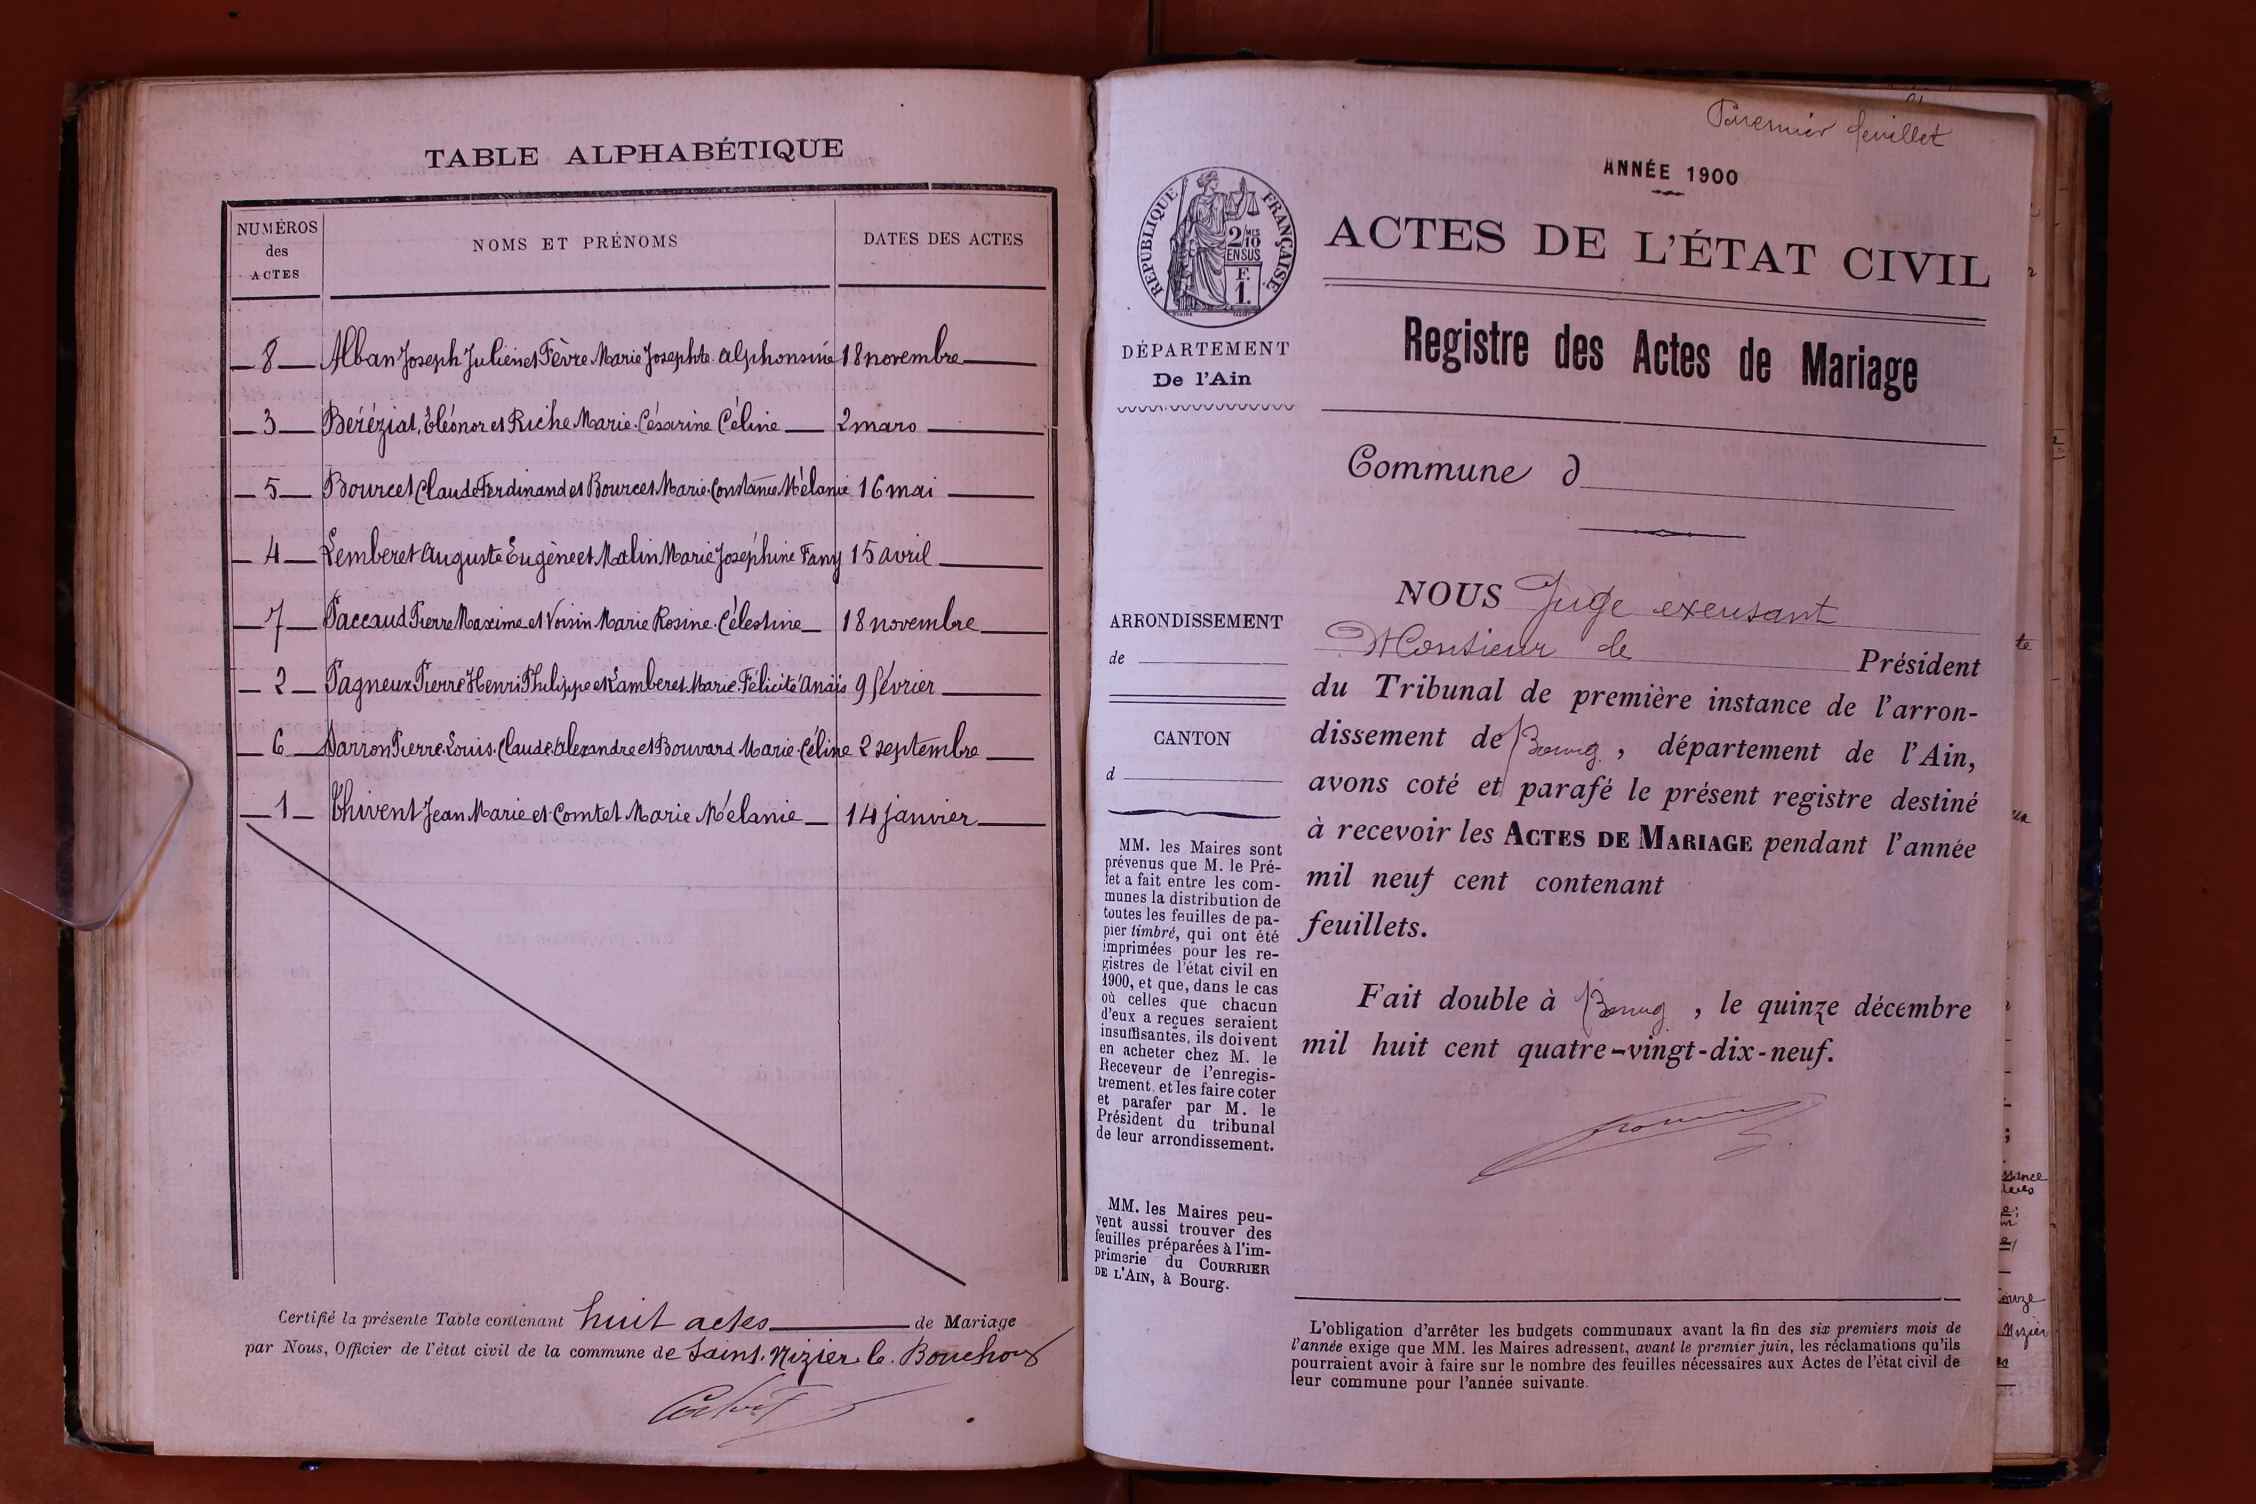 TABLE ALPHABÉTIQUE
NUMÉROS
des
ACTES
NOMS ET PRÉNOMS
DATES DES ACTES
8 Alban Joseph Julien et Fèvre Marie Josephte Alphonsine 18 novembre
3 Beréziat, Eléonor et Riche Marie Césarine Céline 2 mars
5 Bourcet Claude Ferdinand et Bourcet Marie Constance Mélanie 16 mai
4 Lemberet Auguste Eugène et Malin Marie Joséphine Fany 15 avril
7 Paccaud Pierre Maxime et Voisin Marie Rosine Célestine 18 novembre
2 Pagneux Pierre Henri Philippe et Lamberet Marie Félicité Anaïs 9 février
6 Darron Pierre Louis Claude Alexandre et Bouvard Marie Céline 2 septembre
1 Thivent Jean Marie et Comtet Marie Mélanie 14 janvier
Certifié la présente Table contenant huit actes de Mariage
par Nous, Officier de l'état civil de la commune de Saint. Nizier le Bouchoux
Premier feuillet
ANNÉE 1900
RÉPUBLIQUE FRANÇAISE
2/10 MES
EN SUS
F.
1.
ACTES DE L'ÉTAT CIVIL
Registre des Actes de Mariage
DÉPARTEMENT
De l'Ain
Commune d
ARRONDISSEMENT
de
CANTON
d
MM. les Maires sont
prévenus que M. le Pré-
fet a fait entre les com-
munes la distribution de
toutes les feuilles de pa-
pier timbré, qui ont été
imprimées pour les re-
gistres de l'état civil en
1900, et que, dans le cas
où celles que chacun
d'eux a reçues seraient
insuffisantes, ils doivent
en acheter chez M. le
Receveur de l'enregis-
trement, et les faire coter
et parafer par M. le
Président du tribunal
de leur arrondissement.
MM. les Maires peu-
vent aussi trouver des
feuilles préparées à l'im-
primerie du COURRIER
DE L'AIN, à Bourg.
NOUS Juge exeusant
Monsieur de Président
du Tribunal de première instance de l'arron-
dissement de Bourg, département de l'Ain,
avons coté et parafé le présent registre destiné
à recevoir les ACTES DE MARIAGE pendant l'année
mil neuf cent contenant
feuillets.
Fait double à Bourg, le quinze décembre
mil huit cent quatre-vingt-dix-neuf.
L'obligation d'arrêter les budgets communaux avant la fin des six premiers mois de
l'année exige que MM. les Maires adressent, avant le premier juin, les réclamations qu'ils
pourraient avoir à faire sur le nombre des feuilles nécessaires aux Actes de l'état civil de
leur commune pour l'année suivante.